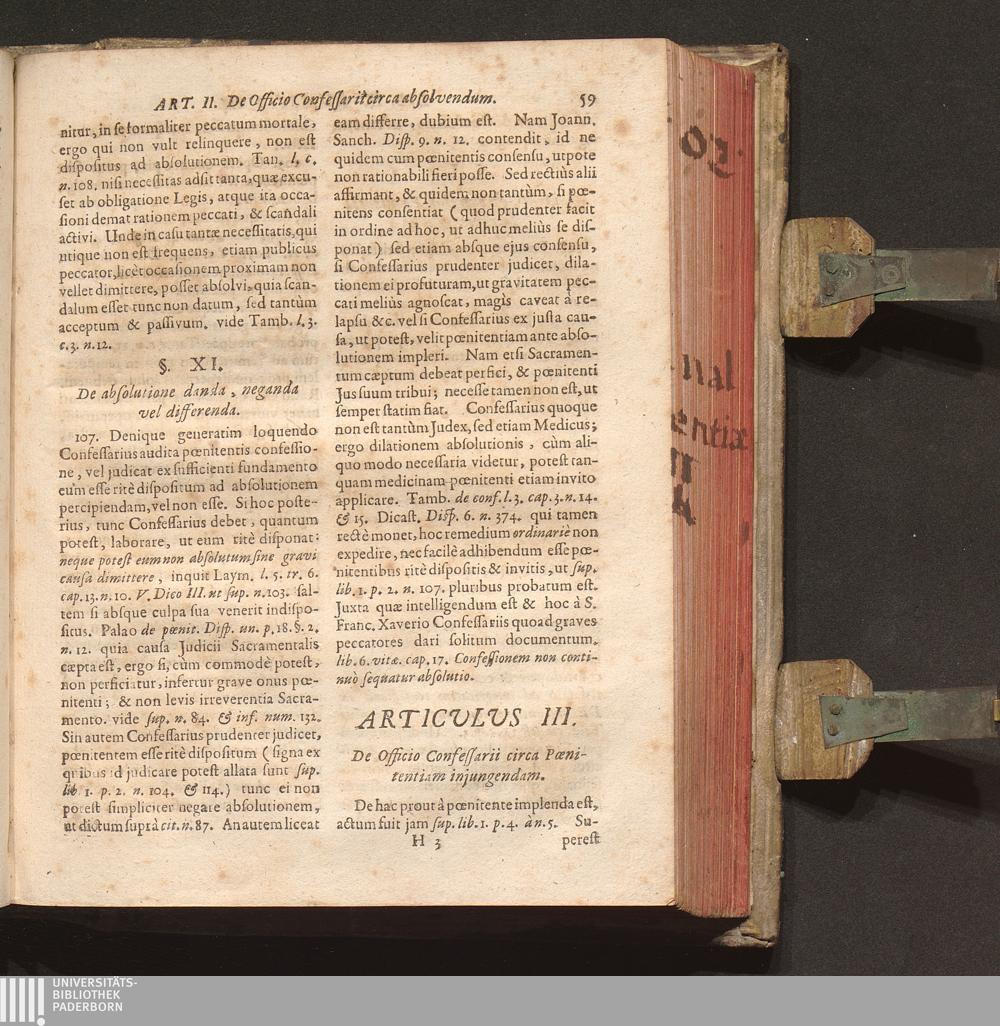 ART. II. De Officio Confessarii circa absolvendum. 59
nitur, in se formaliter peccatum mortale,
ergo qui non vult relinquere, non est
dispositus ad absolutionem. Tan. l. c.
n. 108. nisi necessitas adsit tanta, quæ excu-
set ab obligatione Legis, atque ita occa-
sioni demat rationem peccati, & scandali
activi. Unde in casu tantæ necessitatis, qui
utique non est frequens, etiam publicus
peccator, licèt occasionem proximam non
vellet dimittere, posset absolvi, quia scan-
dalum esset tunc non datum, sed tantùm
acceptum & passivum. vide Tamb. l. 3.
c. 3. n. 12.
§. XI.
De absolutione danda, neganda
vel differenda.
107. Denique generatim loquendo
Confessarius audita pœnitentis confessio-
ne, vel judicat ex sufficienti fundamento
eum esse ritè dispositum ad absolutionem
percipiendam, vel non esse. Si hoc poste-
rius, tunc Confessarius debet, quantum
potest, laborare, ut eum ritè disponat:
neque potest eum non absolutum sine gravi
causa dimittere, inquit Laym. l. 5. tr. 6.
cap. 13. n. 10. V. Dico III. ut sup. n. 103. sal-
tem si absque culpa sua venerit indispo-
situs. Palao de pœnit. Disp. un. p. 18. §. 2.
n. 12. quia causa Judicii Sacramentalis
cæpta est, ergo si, cùm commodè potest,
non perficiatur, infertur grave onus pœ-
nitenti; & non levis irreverentia Sacra-
mento. vide sup. n. 84. & inf. num. 132.
Sin autem Confessarius prudenter judicet,
pœnitentem esse ritè dispositum (signa ex
quibus id judicare potest allata sunt sup.
lib. 1. p. 2. n. 104. & 114.) tunc ei non
potest simpliciter negare absolutionem,
ut dictum suprà cit. n. 87. An autem liceat
eam differre, dubium est. Nam Joann.
Sanch. Disp. 9. n. 12. contendit, id ne
quidem cum pœnitentis consensu, utpote
non rationabili fieri posse. Sed rectiùs alii
affirmant, & quidem non tantùm, si pœ-
nitens consentiat (quod prudenter facit
in ordine ad hoc, ut adhuc meliùs se dis-
ponat) sed etiam absque ejus consensu,
si Confessarius prudenter judicet, dila-
tionem ei profuturam, ut gravitatem pec-
cati meliùs agnoscat, magis caveat à re-
lapsu &c. vel si Confessarius ex justa cau-
sa, ut potest, velit pœnitentiam ante abso-
lutionem impleri. Nam etsi Sacramen-
tum cæptum debeat perfici, & pœnitenti
Jus suum tribui; necesse tamen non est, ut
semper statim fiat. Confessarius quoque
non est tantùm Judex, sed etiam Medicus;
ergo dilationem absolutionis, cùm ali-
quo modo necessaria videtur, potest tan-
quam medicinam pœnitenti etiam invito
applicare. Tamb. de conf. l. 3. cap. 3. n. 14.
& 15. Dicast. Disp. 6. n. 374. qui tamen
rectè monet, hoc remedium ordinariè non
expedire, nec facilè adhibendum esse pœ-
nitentibus ritè dispositis & invitis, ut sup.
lib. 1. p. 2. n. 107. pluribus probatum est.
Juxta quæ intelligendum est & hoc à S.
Franc. Xaverio Confessariis quoad graves
peccatores dari solitum documentum.
lib. 6. vitæ. cap. 17. Confessionem non conti-
nuò sequatur absolutio.
ARTICULUS III.
De Officio Confessarii circa Pœni-
tentiam injungendam.
De hac prout à pœnitente implenda est,
actum fuit jam sup. lib. 1. p. 4. à n. 5. Su-
H 3 perest
nal
entiæ
UNIVERSITÄTS-
BIBLIOTHEK
PADERBORN